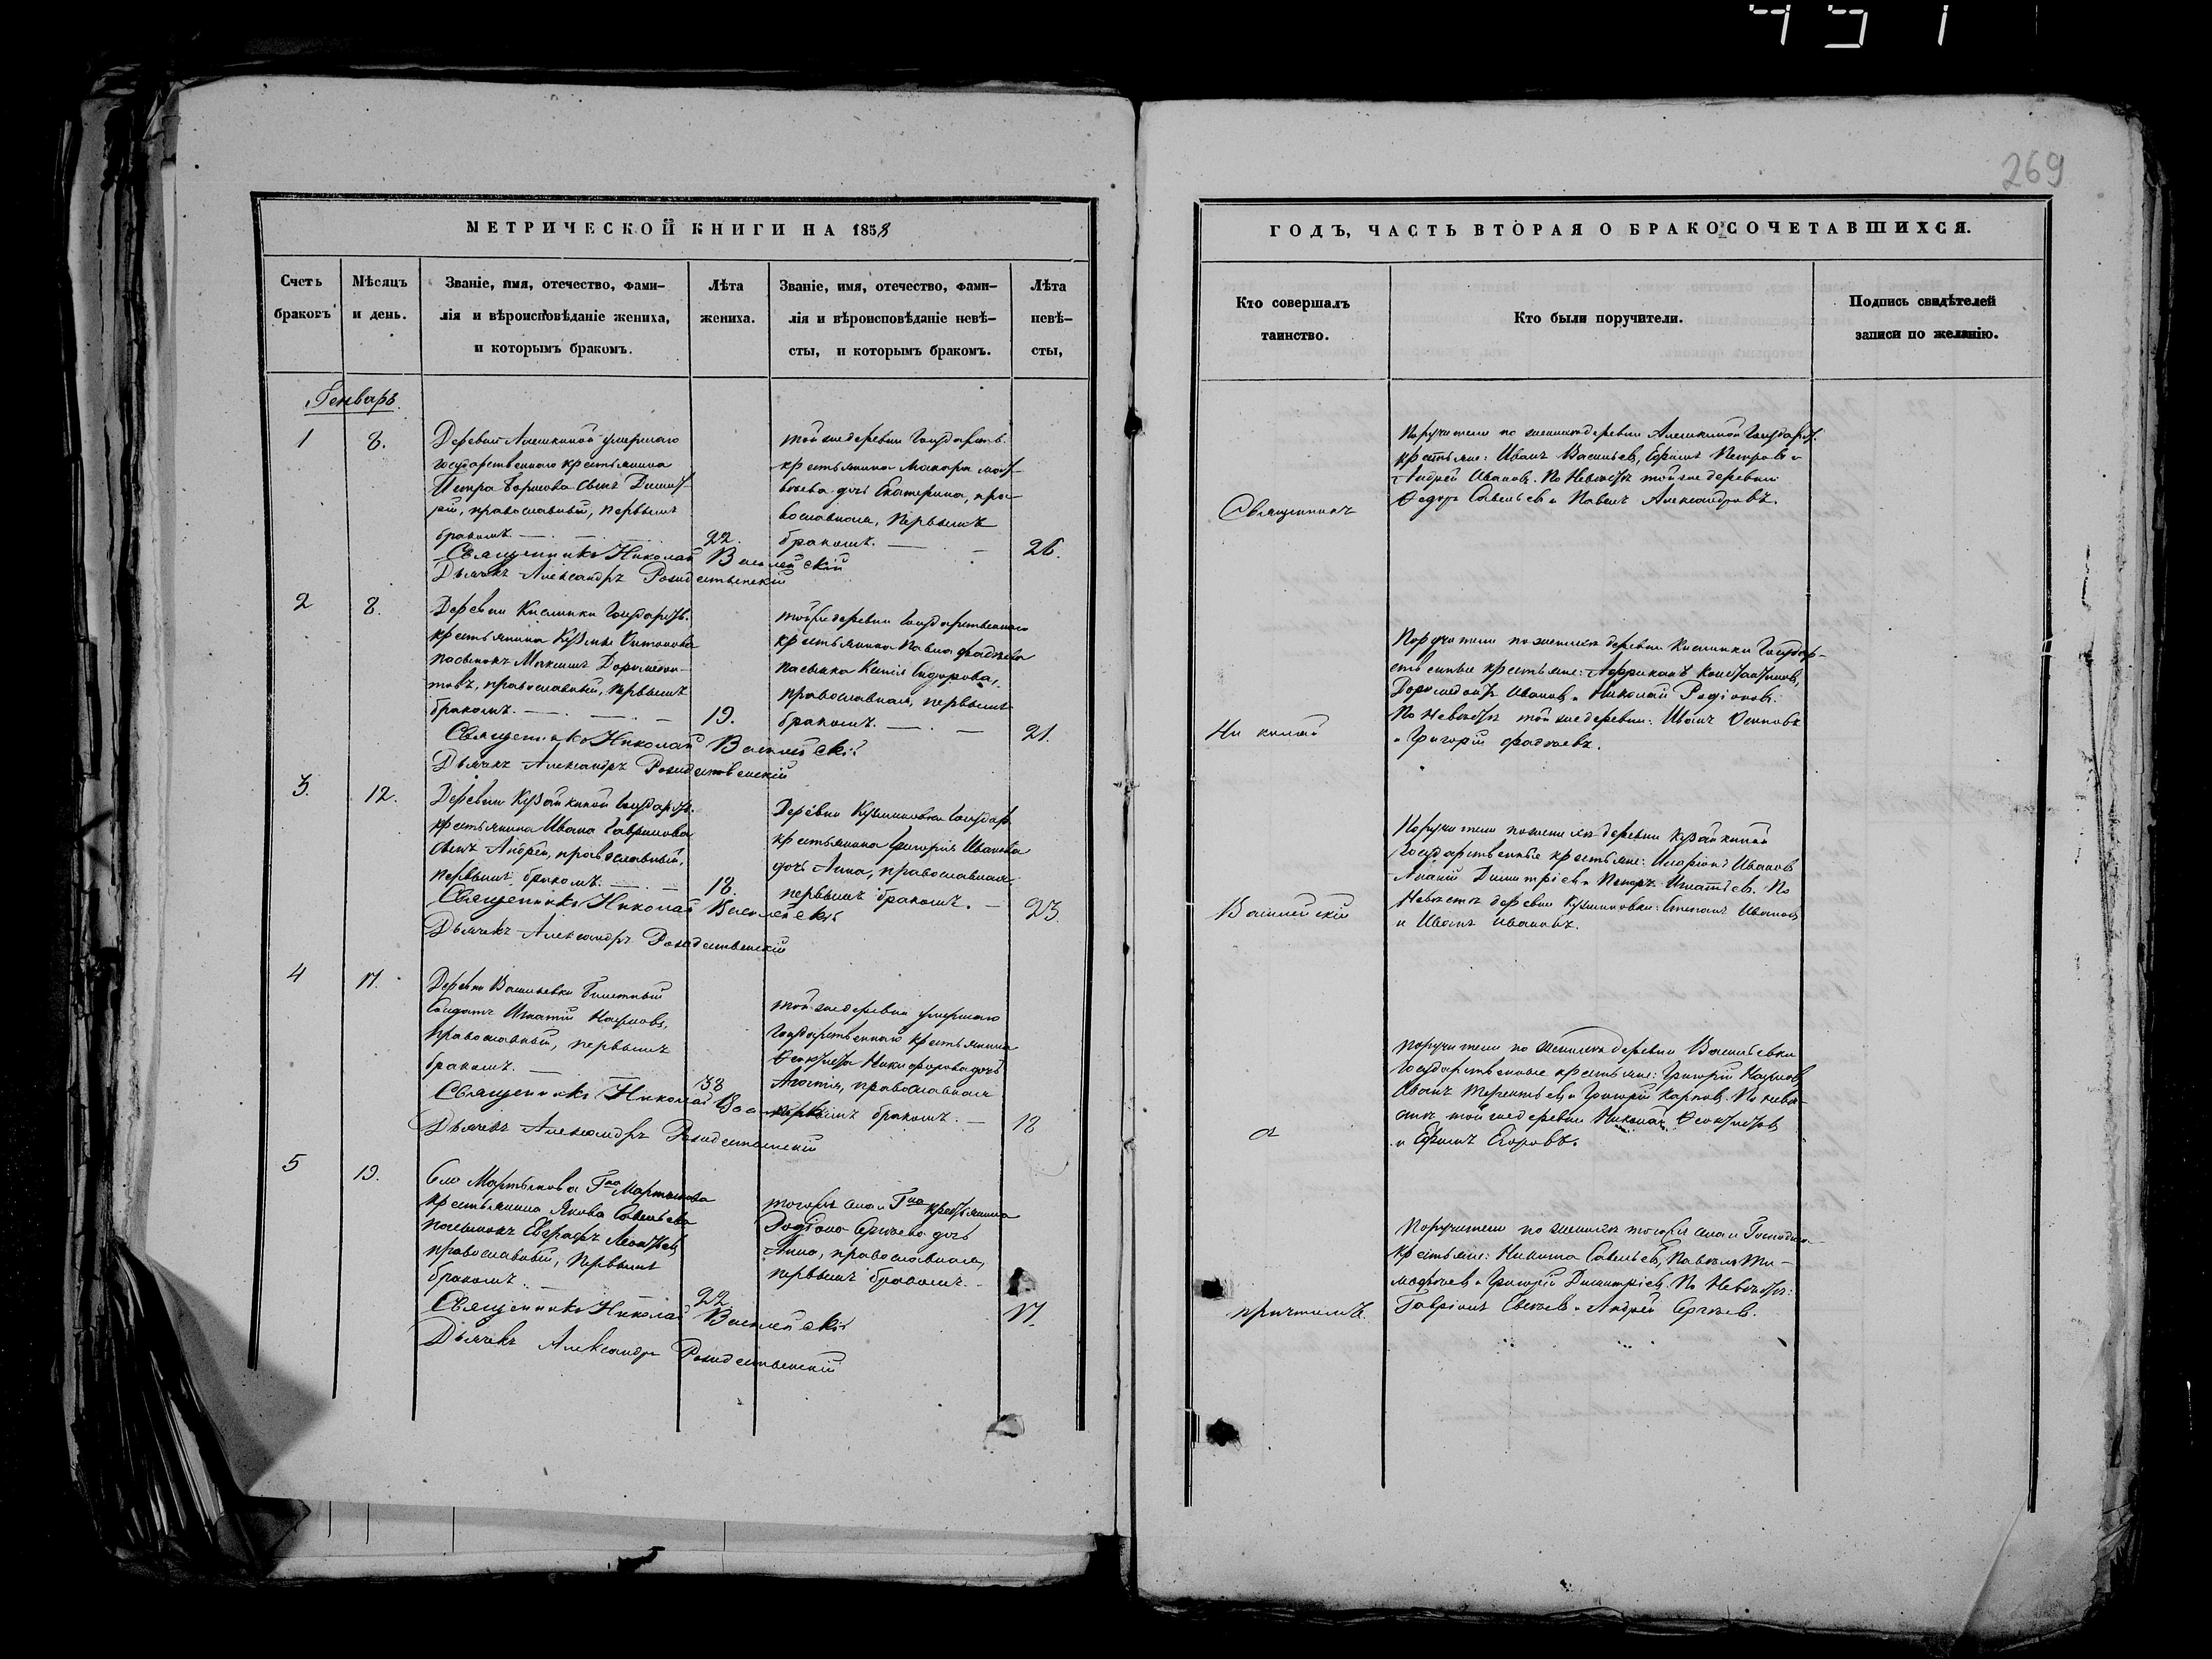 269
МЕТРИЧЕСКОЙ КНИГИ НА 1858
Счетъ
браковъ
Мѣсяцъ
и день.
Званіе, имя, отечество, фами-
лія и вѣроисповѣданіе жениха,
и которымъ бракомъ.
Лѣта
жениха.
Званіе, имя, отечество, фами-
лія и вѣроисповѣданіе невѣ-
сты, и которымъ бракомъ.
Лѣта
невѣ-
сты,
Генварь.
1
8.
Деревни Алешкиной умершаго
государственнаго крестьянина
Петра сынъ Димит-
рій, православный, первымъ
бракомъ.
22.
той же деревни Государств.
крестьянина Макара Мат-
вѣева дочь Екатерина, пра-
вославная, первымъ
бракомъ.
26.
Священникъ Николай
Дьячекъ Александръ Рождественскій
2
8.
Деревни Кислинки Государств.
крестьянина Кузьмы
пасынокъ Максимъ Доримедон-
товъ, православный, первымъ
бракомъ.
19.
той же деревни Государственнаго
крестьянина Павла Фадѣева
Сидорова,
православная, первымъ
бракомъ.
21.
Священникъ Николай
Дьячекъ Александръ Рождественскій
3.
12.
Деревни Кузайкиной Государств.
крестьянина Ивана Гаврилова
сынъ Андрей, православный,
первымъ бракомъ.
18.
Деревни Кузминовки Государ.
крестьянина Григорія Иванова
дочь Анна, православная,
первымъ бракомъ.
23.
Священникъ Николай
Дьячекъ Александръ Рождественскій
4
17.
Деревни Васильевки билетный
Солдатъ Игнатій Наумовъ,
православный, первымъ
бракомъ.
38
той же деревни умершаго
Государственнаго крестьянина
Феоктиста Никифорова дочь
православная
первымъ бракомъ.
18
Священникъ Николай
Дьячекъ Александръ Рождественскій
5
19.
Села Мартынова Гна Мартынова
крестьянина Якова Савельева
пасынокъ Евграфъ Леонтьевъ
православный, первымъ
бракомъ.
22
того же села и Гна крестьянина
Родіона Сергѣева дочь
Анна, православная,
первымъ бракомъ.
17.
Священникъ Николай
Дьячекъ Александръ Рождественскій
ГОДЪ, ЧАСТЬ ВТОРАЯ О БРАКОСОЧЕТАВШИХСЯ.
Кто совершалъ
таинство.
Кто были поручители.
Подпись свидѣтелей
записи по желанію.
Священникъ
Поручители по женихѣ деревни Алешкиной Государ.
крестьяне: Иванъ Васильевъ, Ефимъ Петровъ и
Андрей Ивановъ. По Невѣстѣ той же деревни
Федоръ Савельевъ и Павелъ Александровъ.
Николай
Поручители по женихѣ деревни Кислинки Государ-
ственные крестьяне: Африканъ Константиновъ,
Доримедонтъ Ивановъ и Николай Родіоновъ.
По Невѣстѣ той же деревни: Иванъ Осиповъ
и Григорій Фадѣевъ.
Поручители по женихѣ деревни Кузайкиной
Государственные крестьяне: Иларіонъ Ивановъ
Ананій Димитріевъ и Петръ Игнатьевъ. По
Невѣстѣ деревни Кузминовки: Степанъ Ивановъ
и Иванъ Ивановъ.
съ
Поручители по женихѣ деревни Васильевки
Государственные крестьяне: Григорій Наумовъ
Иванъ Терентьевъ и Григорій Карповъ. По невѣ-
стѣ той же деревни Николай Феоктистовъ
и Ефимъ Егоровъ.
причтомъ.
Поручители по женихѣ того же села и Господина
крестьяне: Никита Савельевъ, Павелъ Ти-
мофѣевъ и Григорій Димитріевъ. По Невѣстѣ:
Гавріилъ и Андрей Сергѣевъ.